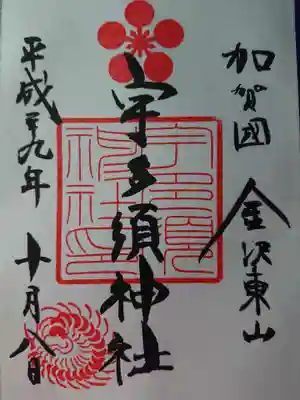 加賀國
金沢東山
宇多須神社
平成二十九年
十月八日